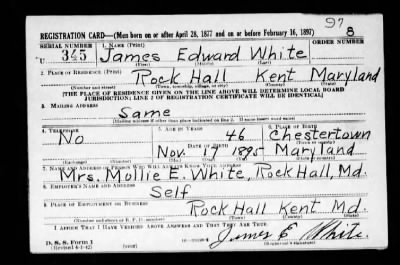 97
REGISTRATION CARD—(Men born on or after April 28, 1877 and on or before February 16, 1897)
8
SERIAL NUMBER 1. NAME (Print) ORDER NUMBER
U 345 James Edward White
(First) (Middle) (Last)
2. PLACE OF RESIDENCE (Print)
Rock Hall Kent Maryland
(Number and street) (Town, township, village, or city) (County) (State)
[THE PLACE OF RESIDENCE GIVEN ON THE LINE ABOVE WILL DETERMINE LOCAL BOARD
JURISDICTION; LINE 2 OF REGISTRATION CERTIFICATE WILL BE IDENTICAL]
3. MAILING ADDRESS
Same
[Mailing address if other than place indicated on line 2. If same insert word same]
4. TELEPHONE 5. AGE IN YEARS 6. PLACE OF BIRTH
No 46 Chestertown
Nov. 17 1895 Maryland
7. NAME AND ADDRESS OF PERSON WHO WILL ALWAYS KNOW YOUR ADDRESS
Mrs. Mollie E. White, Rock Hall, Md.
8. EMPLOYER'S NAME AND ADDRESS
Self
9. PLACE OF EMPLOYMENT OR BUSINESS
Rock Hall Kent Md.
(Number and street or R. F. D. number) (Town) (County) (State)
I AFFIRM THAT I HAVE VERIFIED ABOVE ANSWERS AND THAT THEY ARE TRUE.
D. S. S. Form 1
(Revised 4-1-42)
James E White